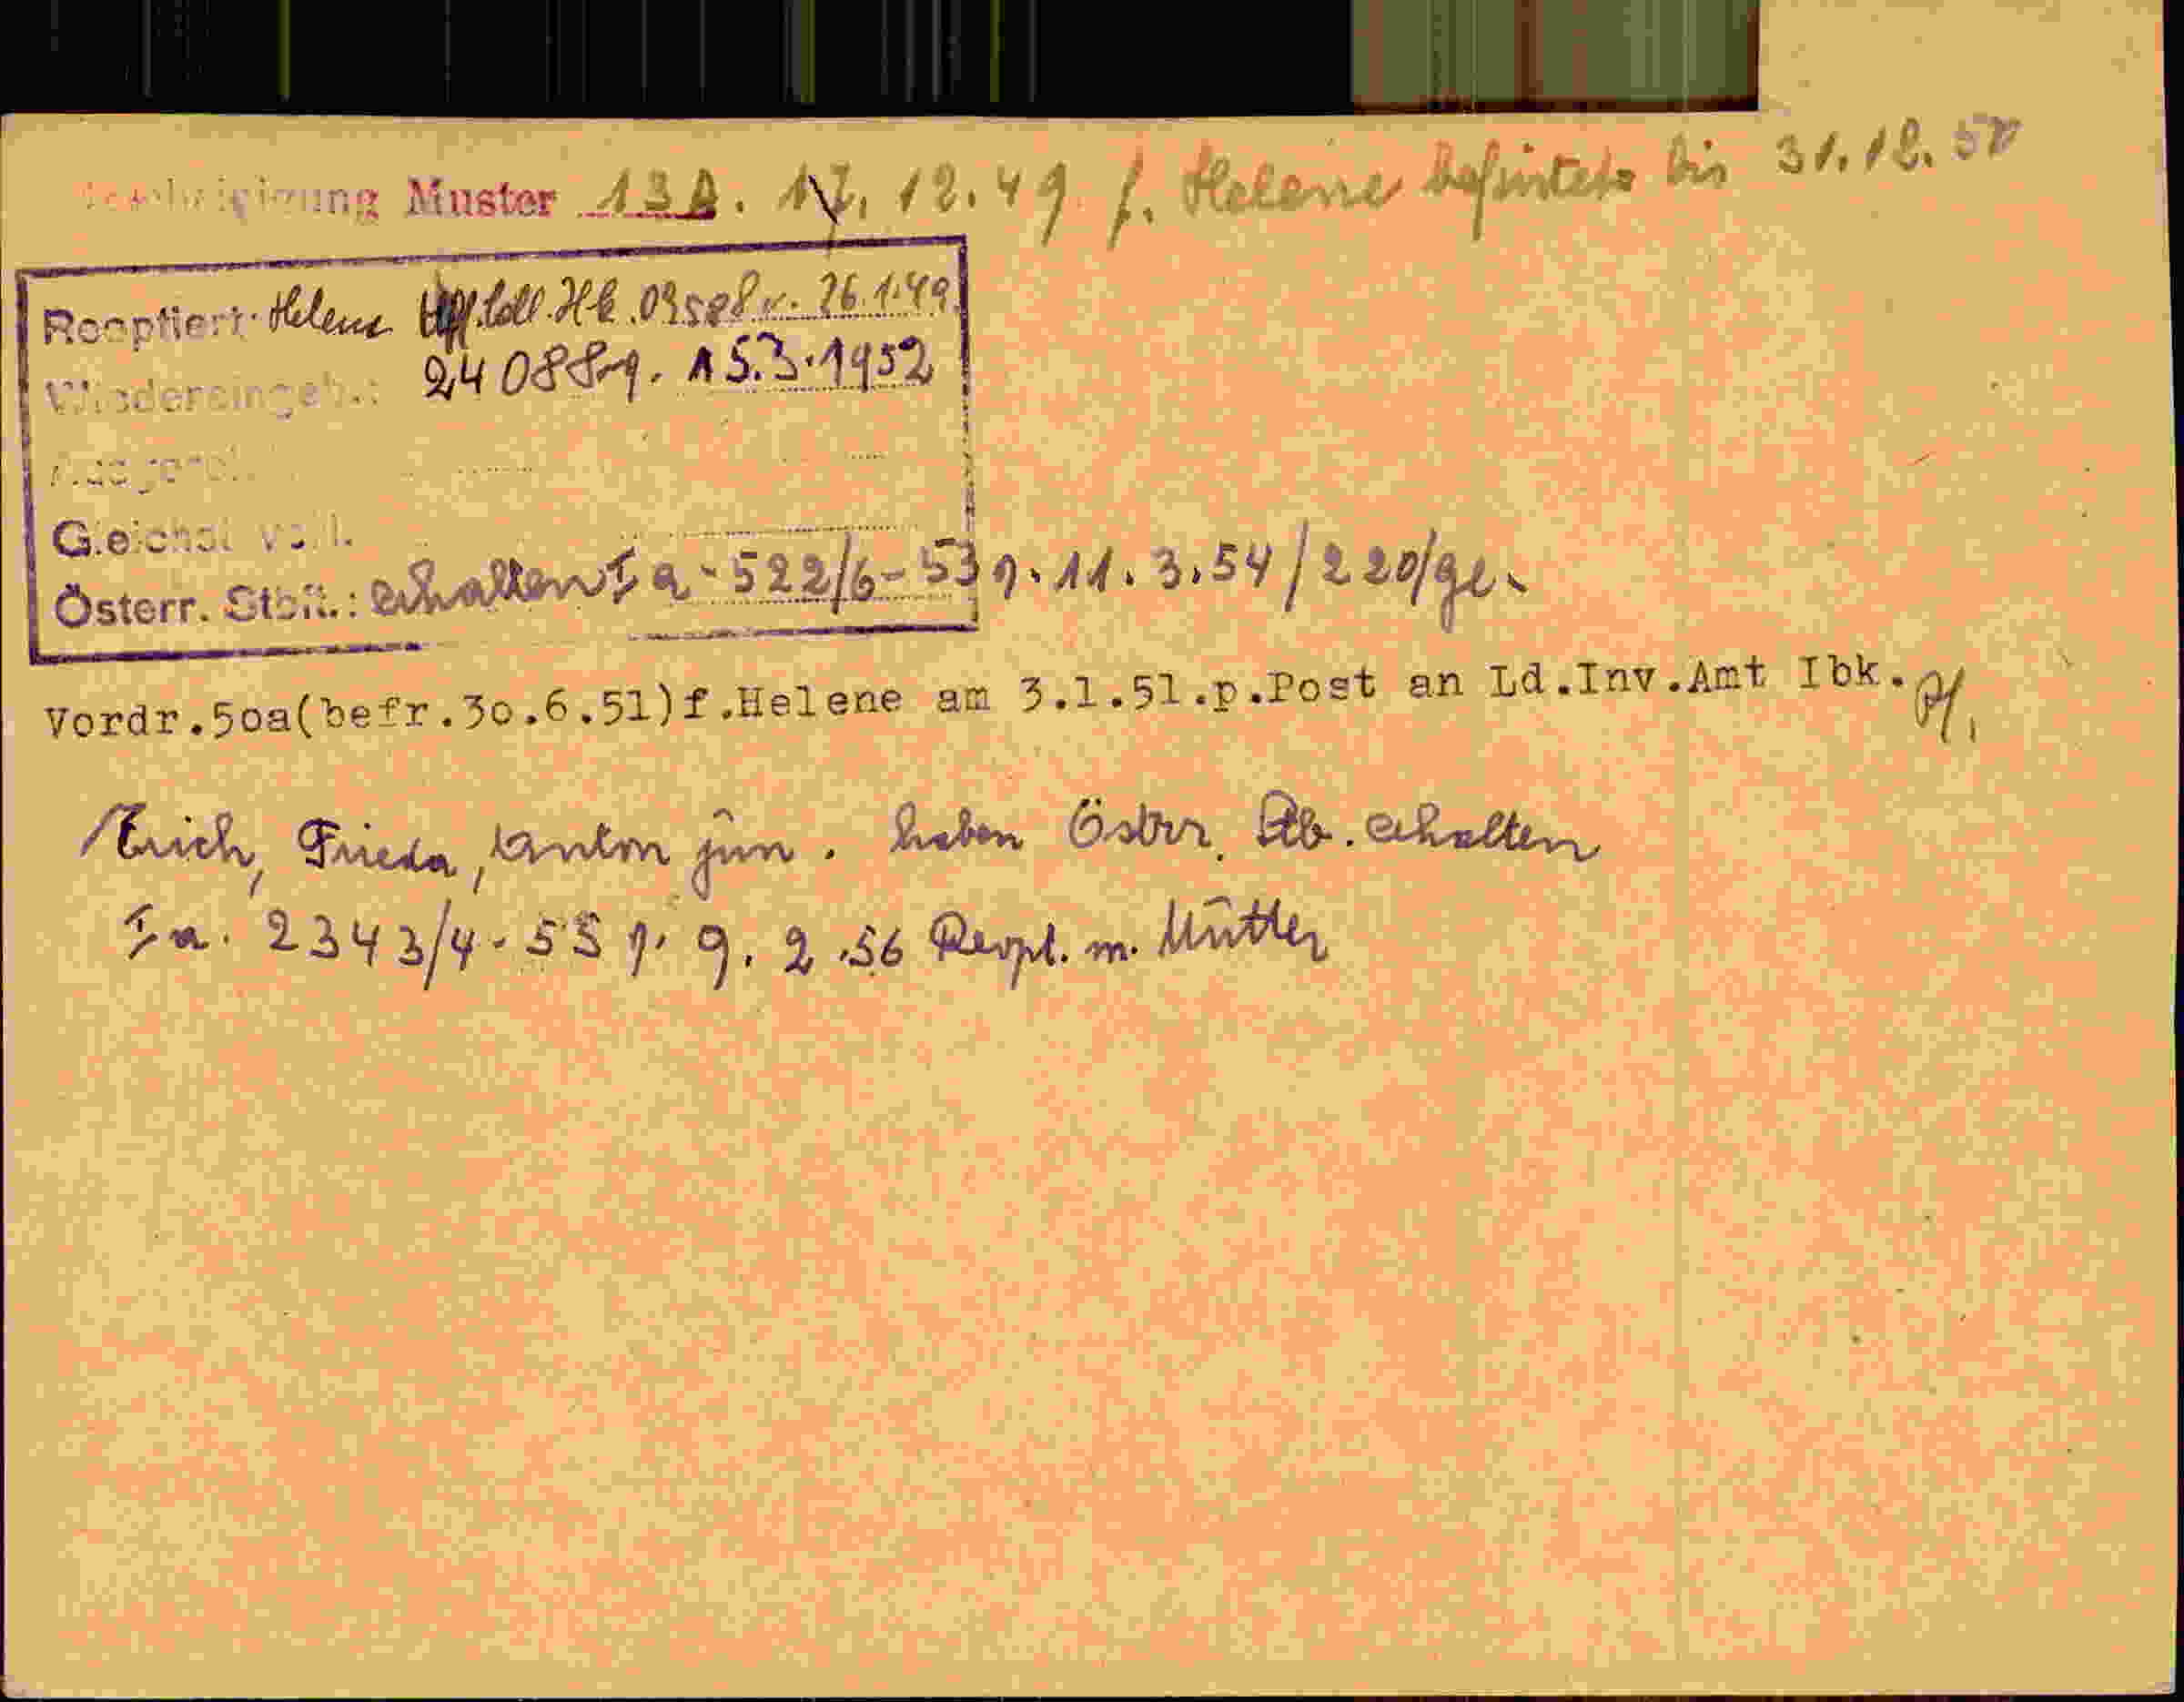 Bescheinigung Muster 13A. 17. 12. 49 f. Helene befristet bis 31. 12. 50
Reoptiert: Helene Uff. Coll. Hk. 09588 v. 26.1.49
Wiedereingeb.: 24088 v. 15.3.1952
Ausgerei
Gleichst voll.
Österr. Stbft.: erhalten Ia-522/6-53 v. 11. 3. 54 / 220/ge.
Vordr.50a(befr.30.6.51)f.Helene am 3.1.51.p.Post an Ld.Inv.Amt Ibk.
Erich, Frieda, Anton jun. haben Österr. Stb. erhalten
Ia. 2343/4-55 v. 9. 2. 56 Reopt. m. Mutter